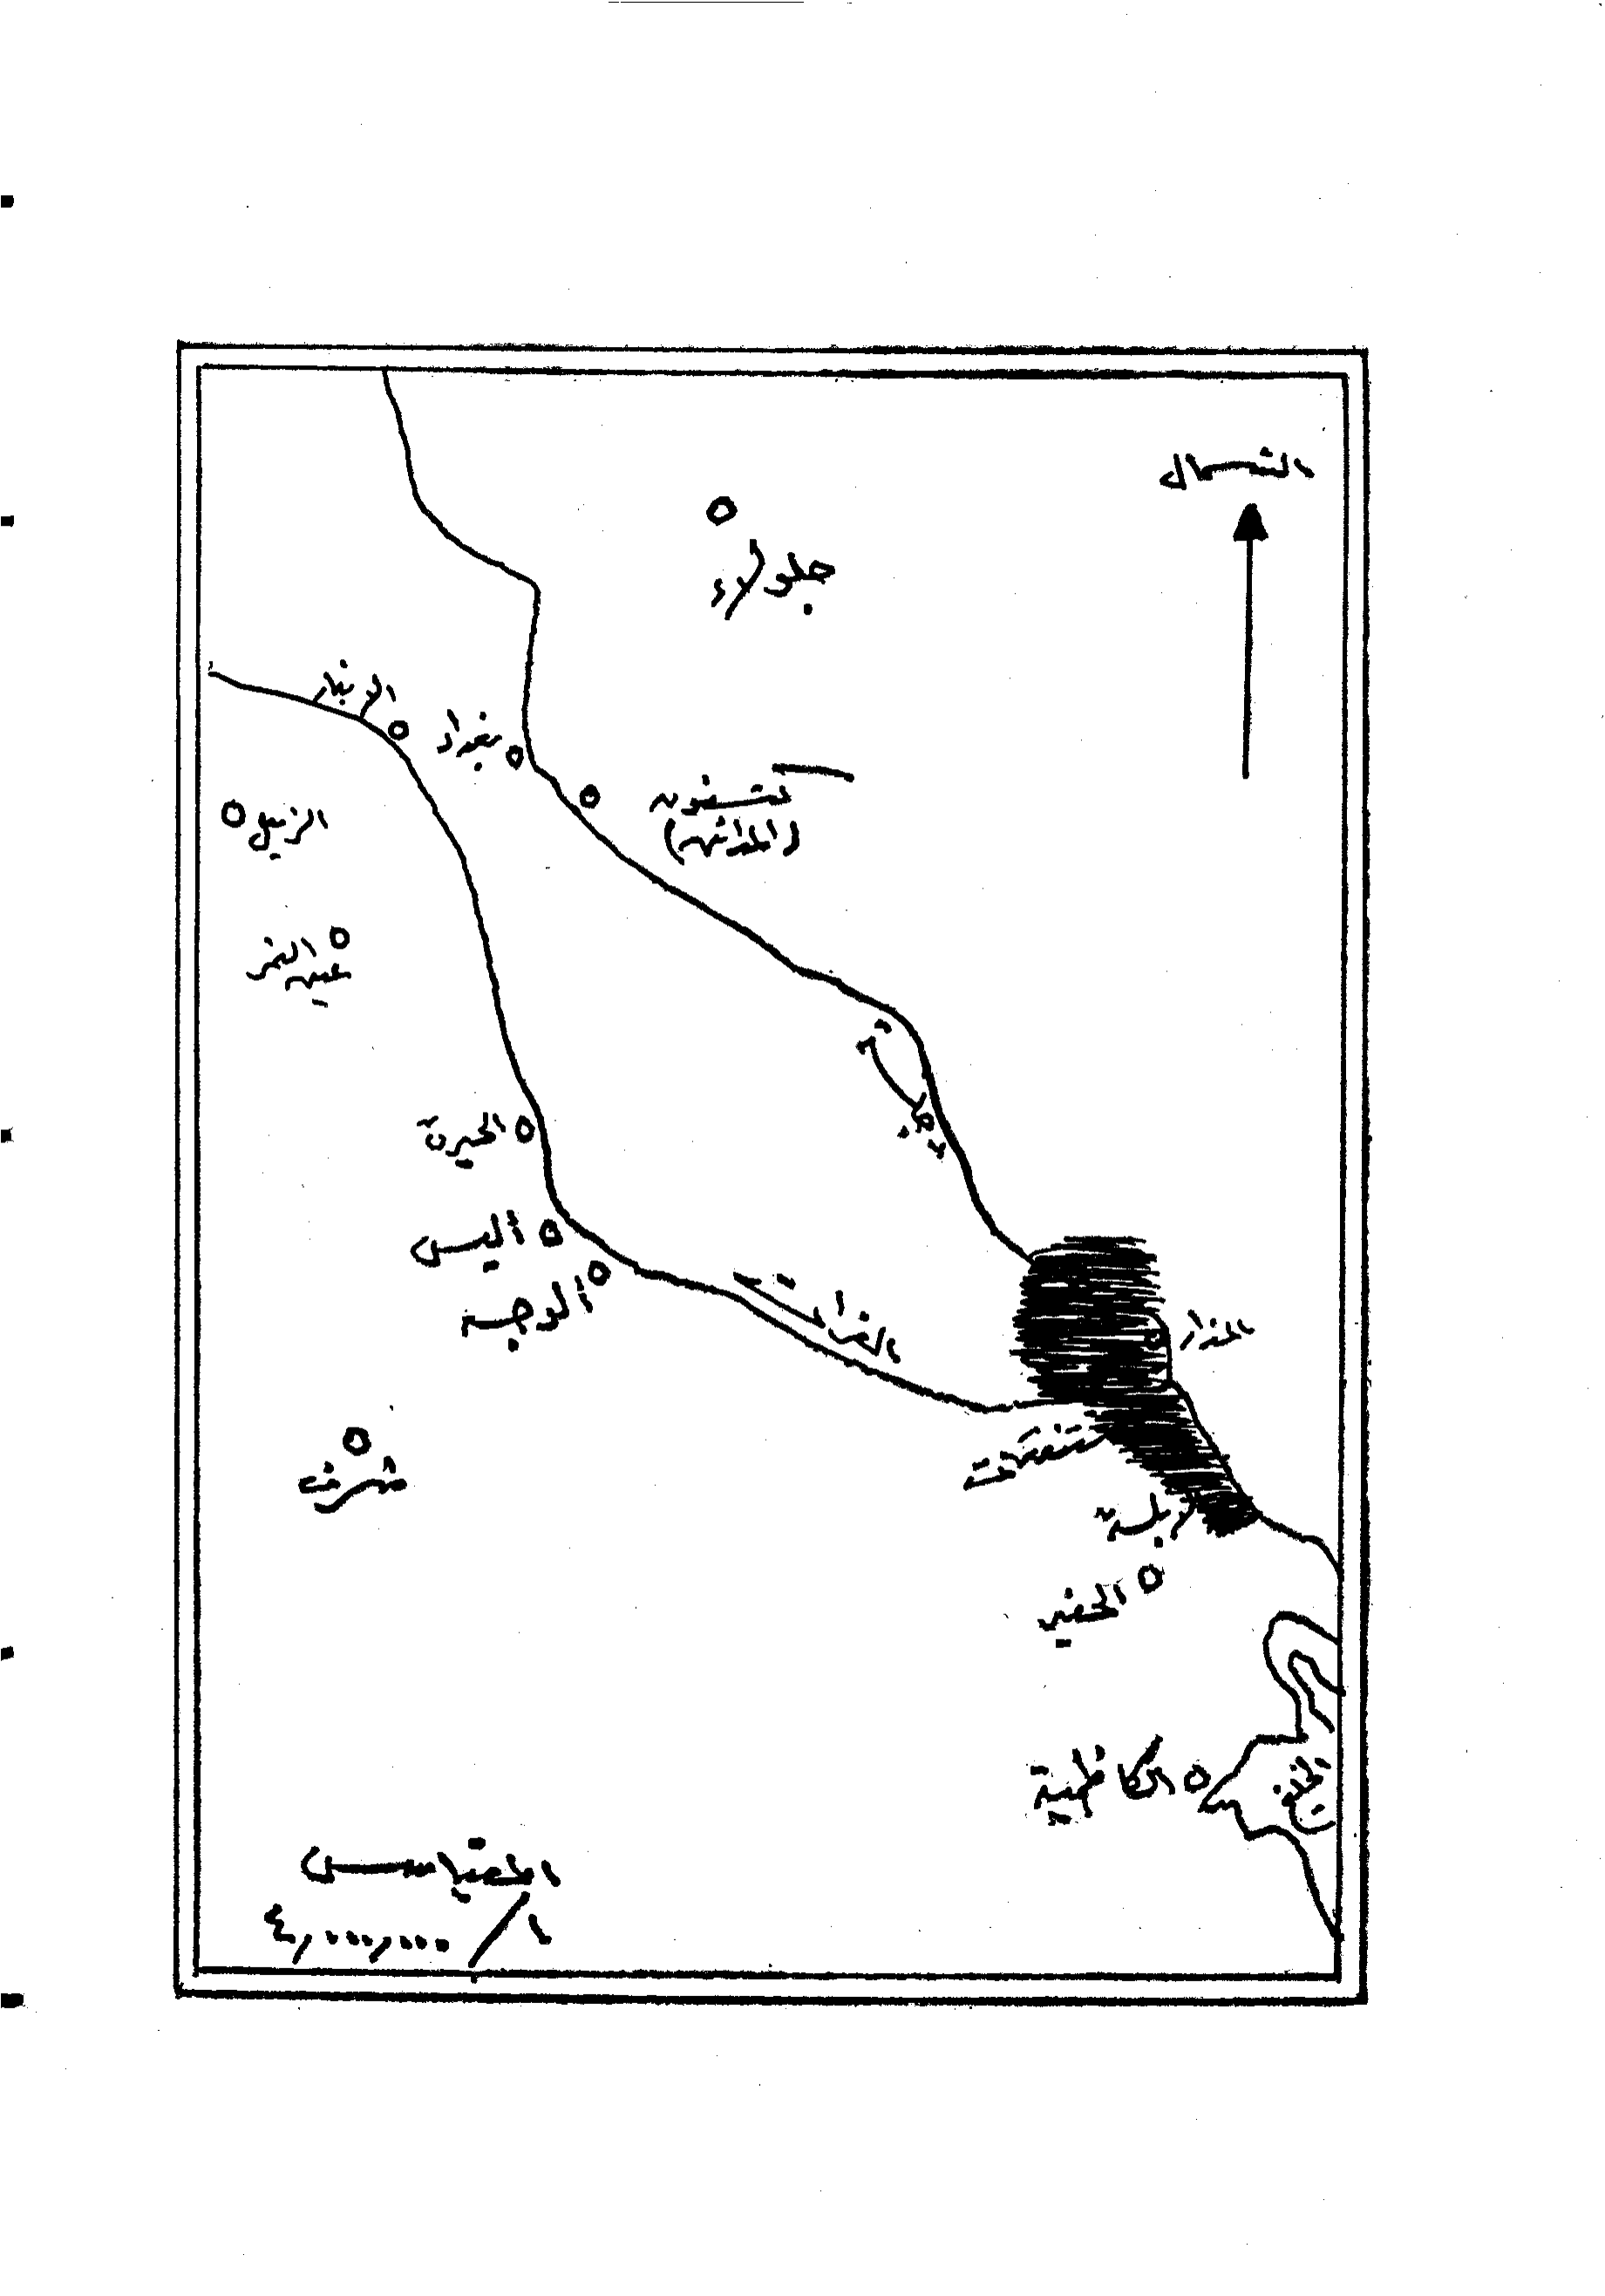 الشمال
جلولاء
الانبار
بغداد
كتسفون
(المدائن)
الزميل
عين التمر
دجلة
الحيرة
أليس
ألوجبه
الفرات
المذار
مستنقعات
الابلة
شرف
الحفير
الكاظمية
الخليج
المقياس
١/٤,٠٠٠,٠٠٠